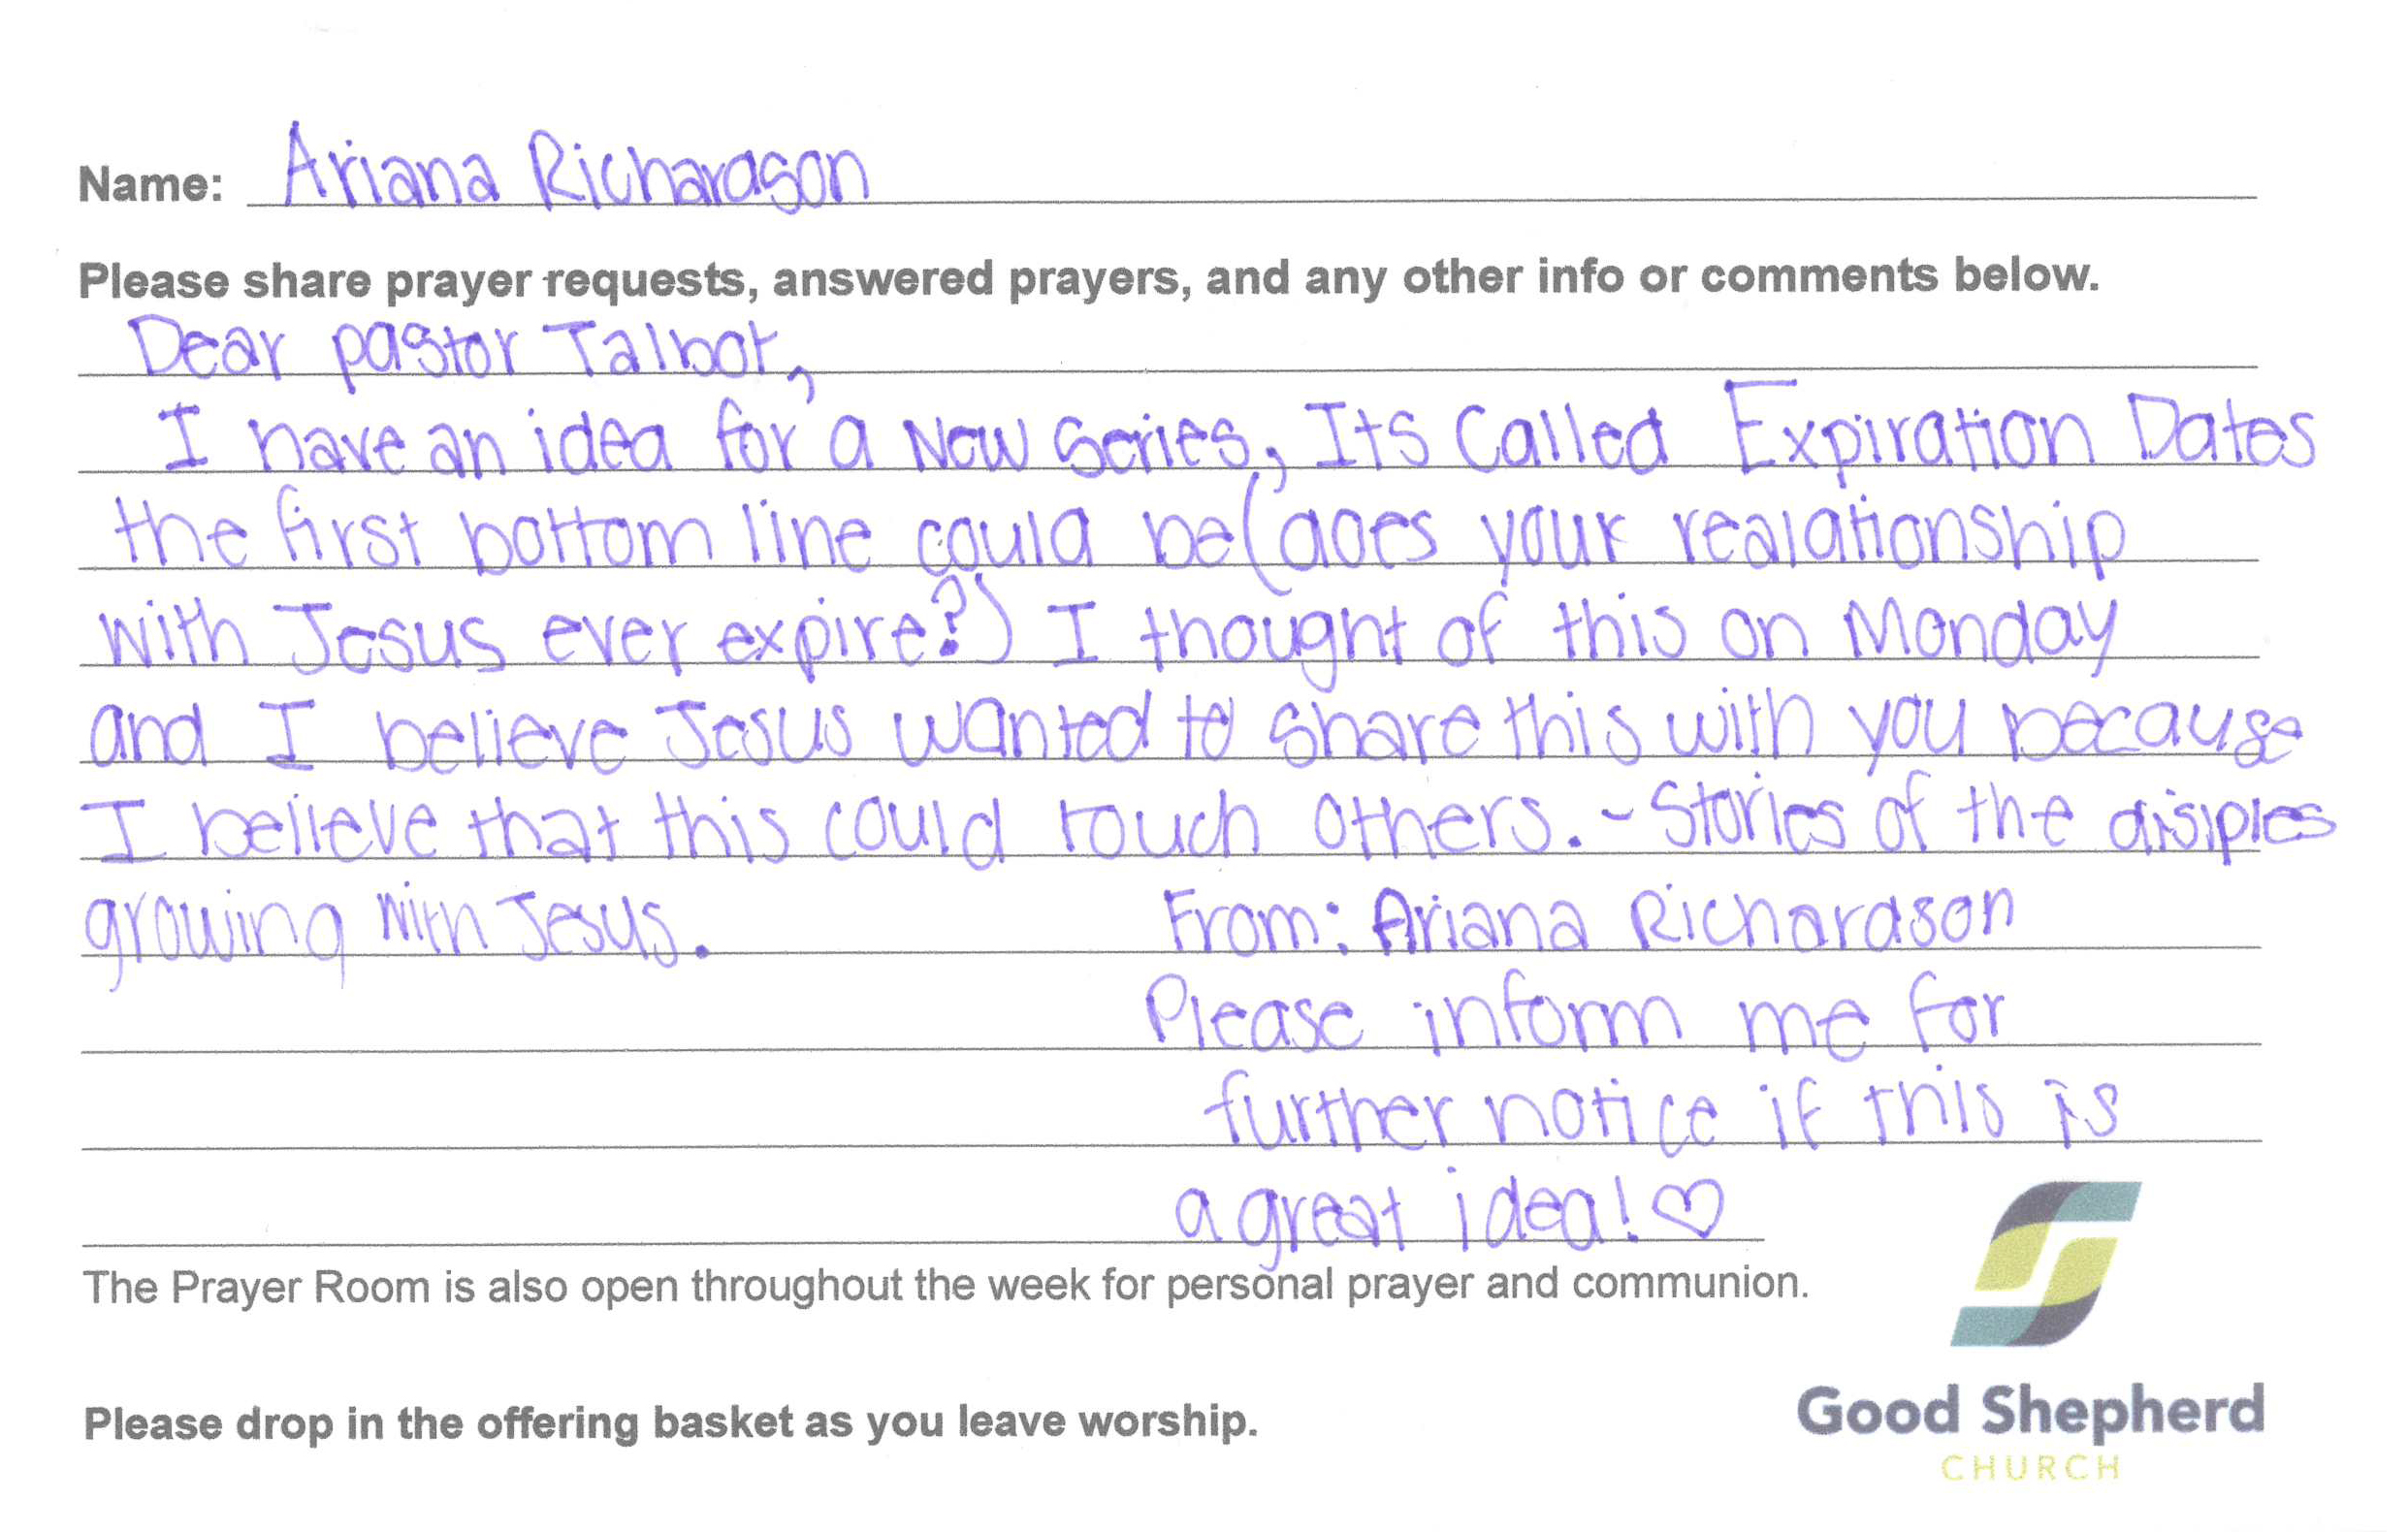 Name: Ariana Richardson
Please share prayer requests, answered prayers, and any other info or comments below.
Dear pastor Talbot,
I have an idea for a New Series, Its Called Expiration Dates
the first bottom line could be (does your realationship
with Jesus ever expire?) I thought of this on Monday
and I believe Jesus wanted to share this with you because
I believe that this could touch others. - Stories of the disiples
growing with Jesus.
From: Ariana Richardson
Please inform me for
further notice if this is
a great idea! ♡
The Prayer Room is also open throughout the week for personal prayer and communion.
Please drop in the offering basket as you leave worship.
Good Shepherd
CHURCH